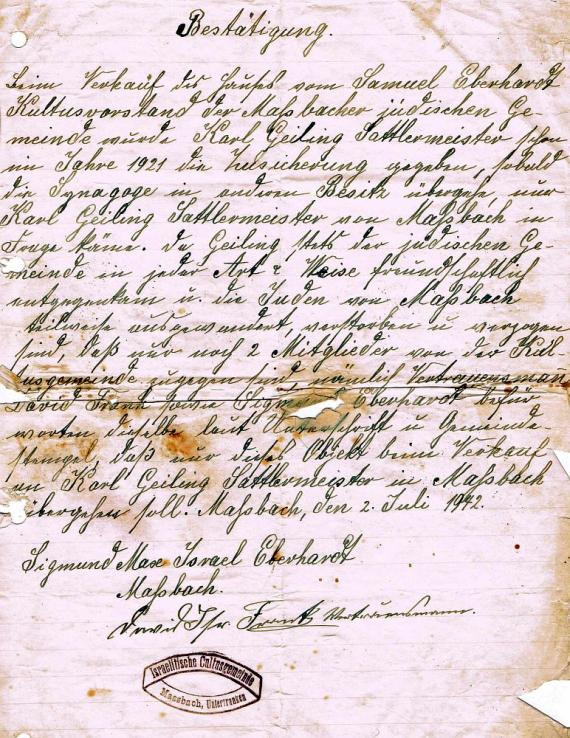 Bestätigung.
Beim Verkauf des Hauses vom Samuel Eberhardt
Kultusvorstand der Maßbacher jüdischen Ge-
meinde wurde Karl Geiling Sattlermeister schon
im Jahre 1921 die Zusicherung gegeben, sobald
die Synagoge in anderen Besitz übergehe nur
Karl Geiling Sattlermeister von Maßbach in
Frage käme. Da Geiling stets der jüdischen Ge-
meinde in jeder Art & Weise freundschaftlich
entgegenkam u. die Juden von Maßbach
teilweise ausgewandert, verstorben u verzogen
sind, daß nur noch 2 Mitglieder von der Kul-
tusgemeinde zugegen sind, nämlich Vertrauensmann
David Frank sowie Eberhardt befür
worten dieselbe laut Unterschrift u Gemeinde-
stempel, daß nur dieses Objekt beim Verkauf
an Karl Geiling Sattlermeister in Maßbach
übergehen soll. Maßbach, den 2. Juli 1942.
Sigmund Max Israel Eberhardt
Maßbach.
David Isr. Frank Vertrauensmann.
Israelitische Cultusgemeinde
Massbach, Unterfranken